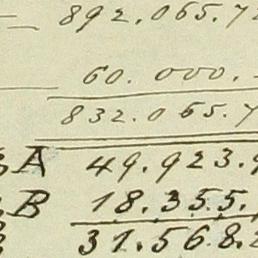 892.065.72
60.000.-
832.065.7
A 49.923.9
B 18.355.
31.568.2